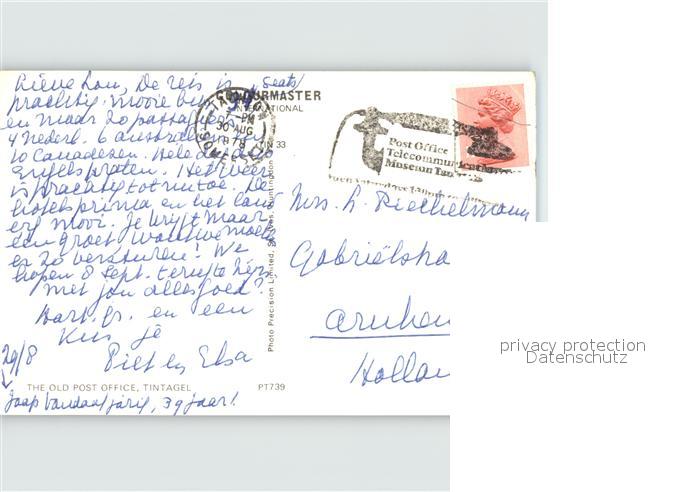 Lieve Lou, De reis is
prachtig. mooie bus, 34 Seats/
en maar 20 passagiers
4 Nederl. 6 australiers
10 Canadezen. Hele dag
Engels praten. Het weer
is prachtig tot nu toe. De
hotels prima en het land
erg mooi. Je krijgt maar
een groet want we moeten
er 20 versturen! We
hopen 8 Sept. terug te zijn
Met jou alles goed?
Hart. gr. en een
Kus je
29/8 Piet en Elsa
Jaap vandaag jarig, 39 jaar!
COLOURMASTER
INTERNATIONAL
TINTAGEL
PM
30 AUG
1978
Post Office
Telecommunications
Museum Taunton
Mrs. L.
Arnhem
Holland
Photo Precision Limited, St. Ives, Huntingdon
THE OLD POST OFFICE, TINTAGEL
PT739
privacy protection
Datenschutz